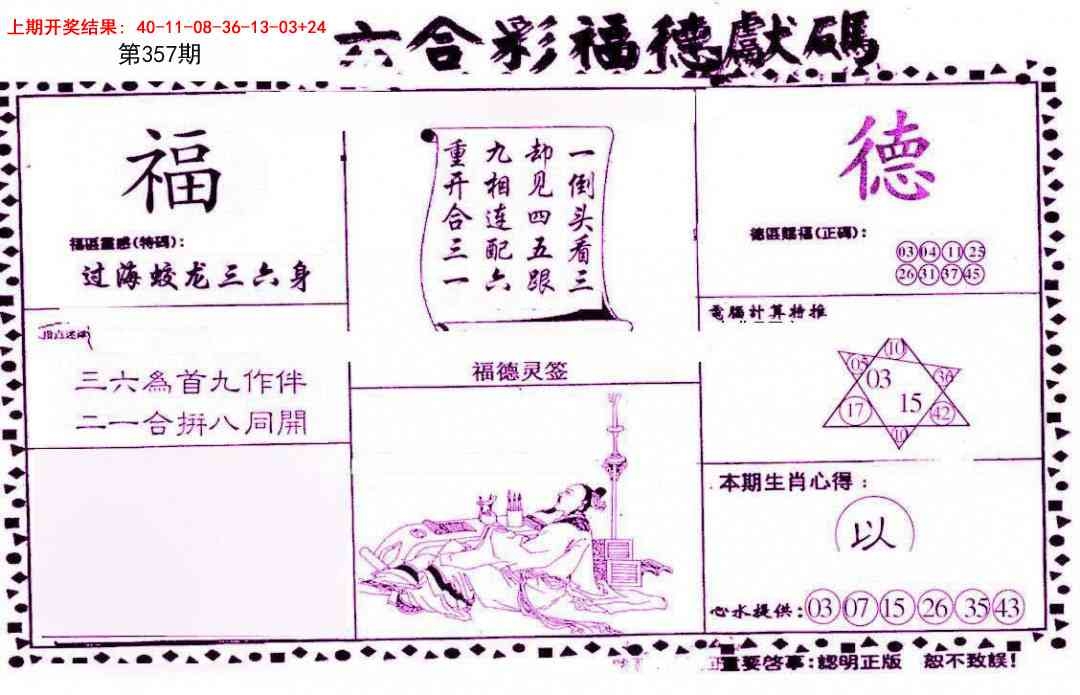 上期开奖结果: 40-11-08-36-13-03+24
第357期
六合彩福德獻碼
福
福區靈感(特碼):
过海蛟龙三六身
一倒头看三
却见四五跟
九相连配六
重开合三一
德
德區賜福(正碼):
03 04 11 25
26 31 37 45
電腦計算特推
10
05 03 36
17 15 42
10
三六為首九作伴
二一合拼八同開
福德灵签
本期生肖心得:
以
心水提供: 03 07 15 26 35 43
重要啓事:認明正版 恕不致誤!